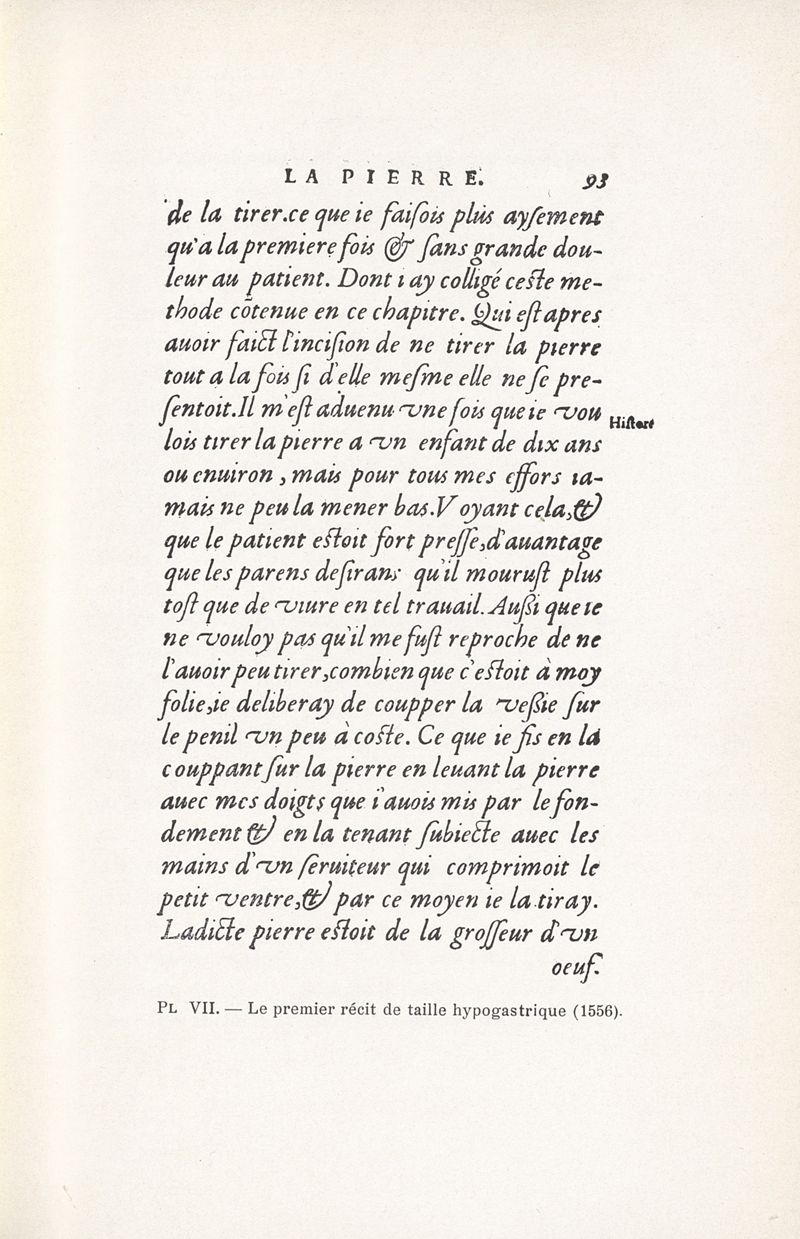 LA PIERRE. 93
de la tirer.ce que ie faiſois plus ayſement
qu'a la premiere fois & ſans grande dou-
leur au patient. Dont i ay colligé ceſte me-
thode cõtenue en ce chapitre. Qui eſt apres
auoir faict l'inciſion de ne tirer la pierre
tout a la fois ſi d'elle meſme elle ne ſe pre-
ſentoit.Il m'eſt aduenu vne fois que ie vou
Hiſtori
lois tirer la pierre a vn enfant de dix ans
ou enuiron , mais pour tous mes effors ia-
mais ne peu la mener bas.Voyant cela,&
que le patient eſtoit fort preſſe,d'auantage
que les parens deſirans qu'il mouruſt plus
toſt que de viure en tel trauail. Auſsi que ie
ne vouloy pas qu'il me fuſt reproche de ne
l'auoir peu tirer,combien que c'eſtoit à moy
folie,ie deliberay de coupper la veſsie ſur
le penil vn peu à coſte. Ce que ie fis en la
couppant ſur la pierre en leuant la pierre
auec mes doigts que i'auois mis par le fon-
dement & en la tenant ſubiecte auec les
mains d'vn ſeruiteur qui comprimoit le
petit ventre,& par ce moyen ie la tiray.
Ladicte pierre eſtoit de la groſſeur d'vn
oeuf.
PL VII. — Le premier récit de taille hypogastrique (1556).